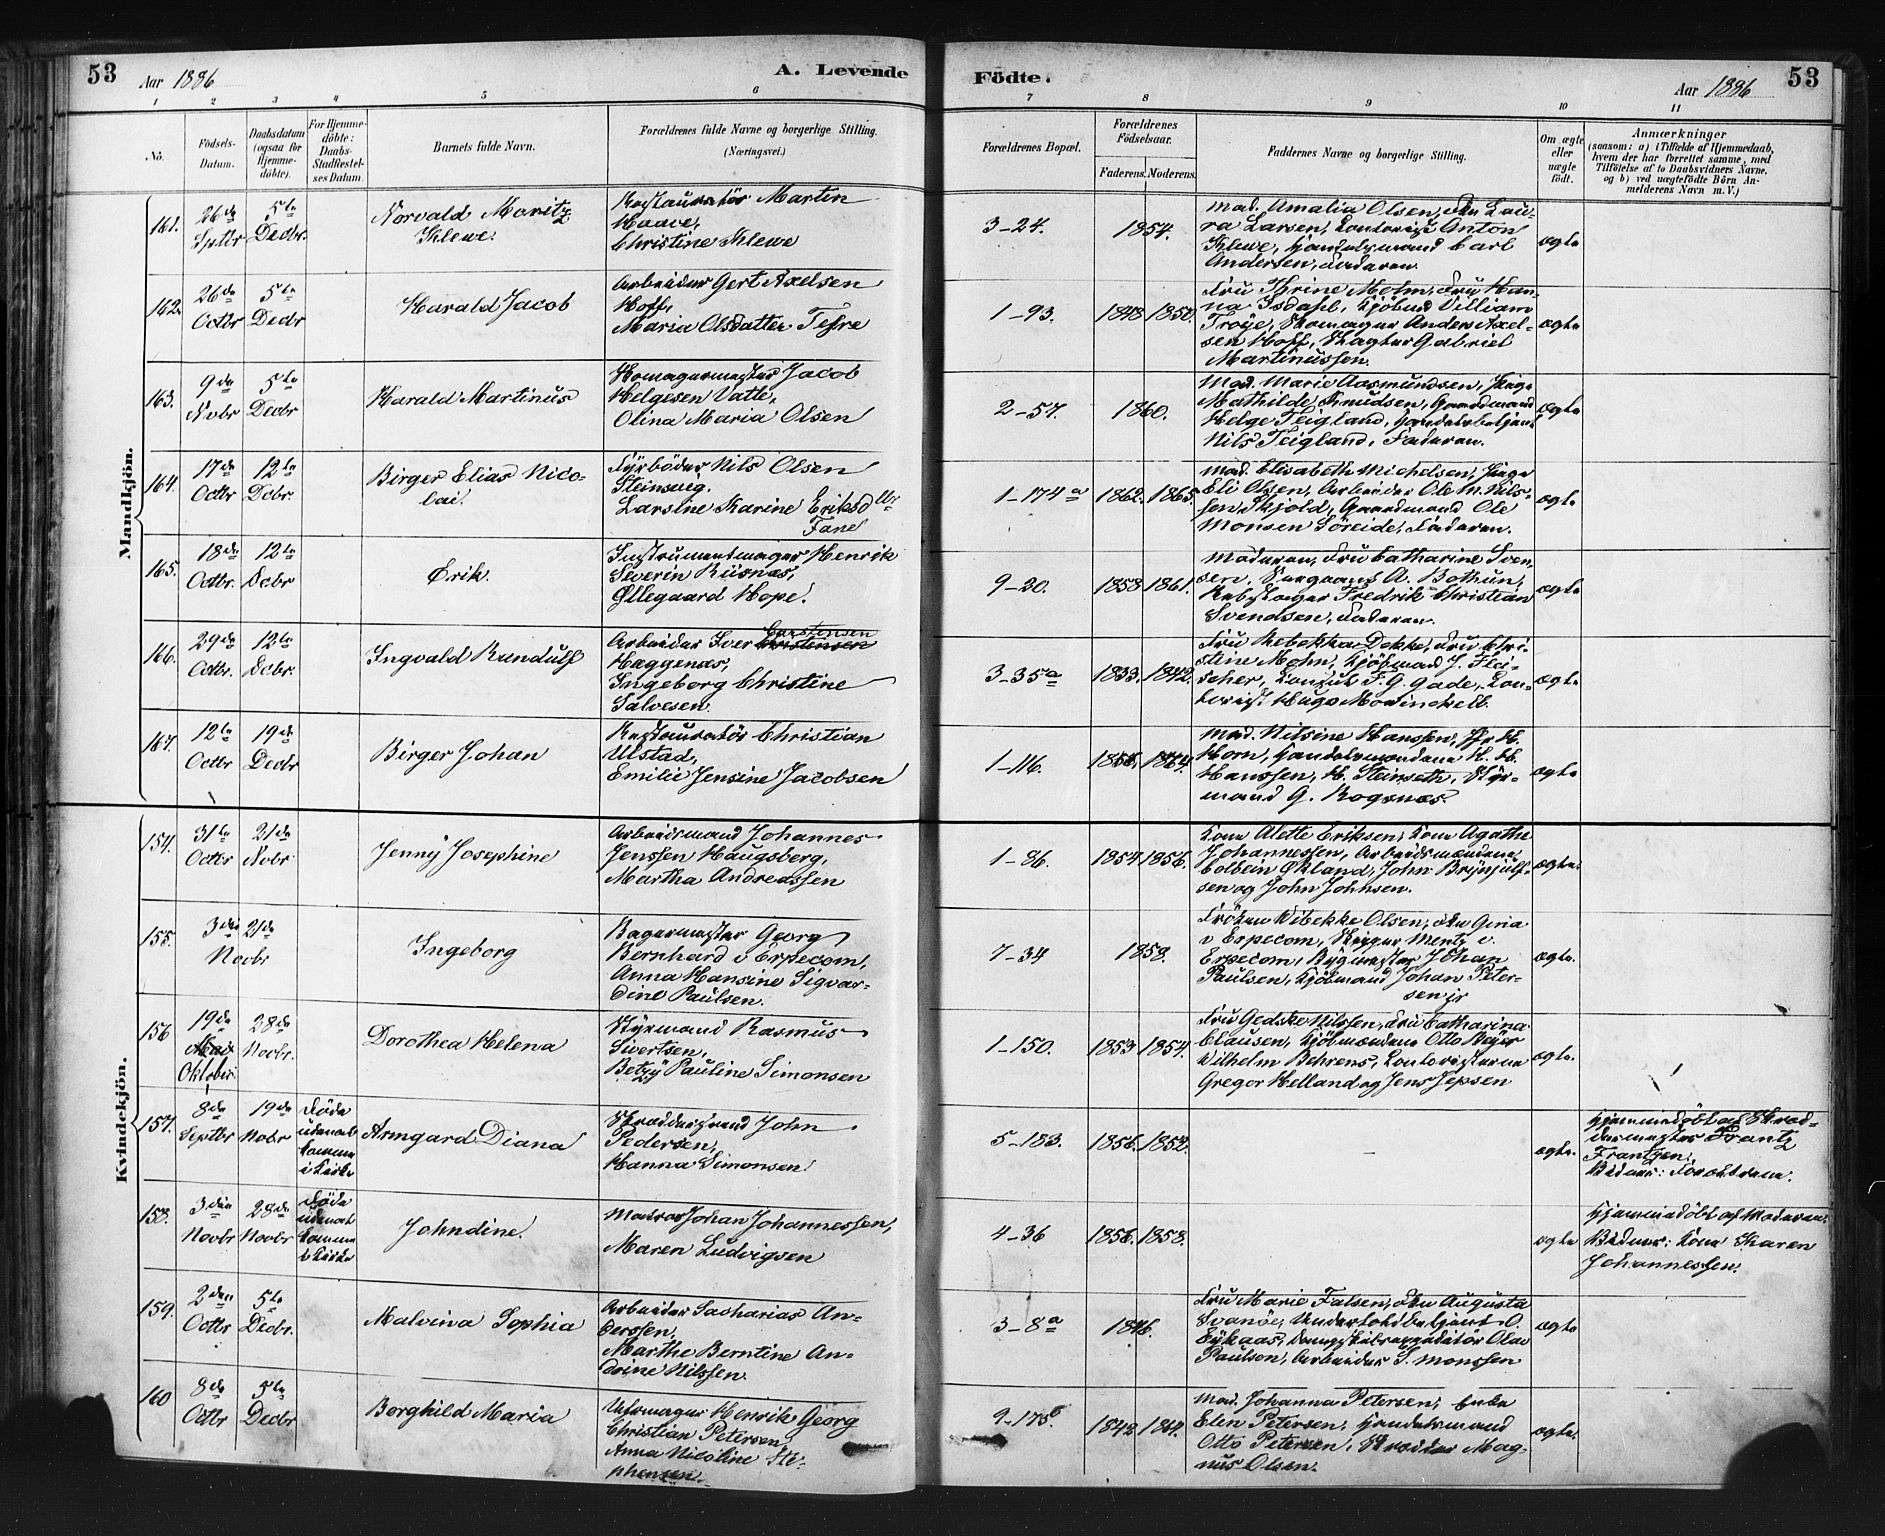 53 Aar 1886 A. Levende Födte. Aar 1886 53
1 2 3 4 5 6 7 8 9 10 11
No.
Födsels-Datum.
Daabsdatum (ogsaa for Hjemme-döbte).
For Hjemme-döbte: Daabs-Stadfæstel-ses Datum.
Barnets fulde Navn.
Forældrenes fulde Navne og borgerlige Stilling.
(Næringsvei.)
Forældrenes Bopæl.
Forældrenes Födselsaar.
Faderens. Moderens.
Faddernes Navne og borgerlige Stilling.
Om ægte eller uægte födt.
Anmærkninger
(saasom: a) i Tilfælde af Hjemmedaab,
hvem der har forrettet samme, med
Tilföielse af to Daabsvidners Navne,
og b) ved uægtefödte Börn An-
melderens Navn m. V.)
Mandkjön.
161. 26de Septbr 5te Decbr.
Norvald Moritz
Klewe.
Restauratör Martin
Haave,
Christine Klewe
3-24. 1854.
Mad. Amalia Olsen, Fru Lau-
ra Larsen, Contorist Anton
Klewe, Handelsmand Carl
Andersen, Faderen.
ægte
162. 26de Octbr 5te Decbr
Harald Jacob
Arbeider Gert Axelsen
Hoff,
Maria Olsdatter Tefre
1-93. 1848 1850.
Fru Thrine Mohn, Fru Han-
na Isdahl, Kjöbmd Villiam
Tröye, Skomager Anders Axel-
sen Hoff, Gabriel
Martinussen.
ægte
163. 9de Novbr 5te Decbr
Harald Martinus
Skomagermester Jacob
Helgesen Vatle,
Olina Maria Olsen
2-57. 1860.
Mad. Marie Aasmundsen, Pige
Mathilde Knudsen, Gaardmand
Helge Teigland, Handelsbetjent
Nils Teigland, Faderen.
ægte
164. 17de Octbr 12te Dcbr.
Birger Elias Nico-
lai.
Fyrböder Nils Olsen
Steinsvig.
Larsine Karine Eriksdtr
Fane
1-174a 1862. 1865.
Mad. Elisabeth Michelsen, Pige
Eli Olsen, Arbeider Ole M. Nils-
sen Skjold, Gaardmand Ole
Monsen Söreide, Faderen.
ægte
165. 18de Octbr. 12te Dcbr
Erik.
Instrumentmager Henrik
Severin Riisnæs,
Øllegaard Hope.
9-20. 1858 1861.
Moderen, Fru Catharine Sven-
sen, Sergeant A. Bothun,
Rebslager Fredrik Christian
Svendsen, Faderen.
ægte
166. 29de Octbr. 12te Dcbr.
Ingvald Randulf
Carstensen
Arbeider Iver Christensen
Hæggenæs,
Ingeborg Christine
Salvesen.
3-35a 1833. 1842.
Fru Rebekka Dekke, Fru Chri-
stine Mohn, Kjöbmand J. Flei-
scher, Consul F. G. Gade, Con-
torist Hugo Mowinckell.
ægte
167. 12te Octbr 19de Decbr
Birger Johan
Restauratör Christian
Ulstad,
Emilie Jensine Jacobsen
1-116. 1856. 1864.
Mad. Nilsine Hanssen, H.
Horn, Handelsmændene H. H.
Hanssen, H. Steinseth, Styr-
mand G. Rogsnæs.
ægte
Kvindekjön.
154. 31te Octbr 21de Novbr
Jenny Josephine
Arbeidsmand Johannes
Jenssen Haugsberg,
Martha Andreassen
1-86. 1854 1856.
Kone Alette Eriksen, Kone Agathe
Johannessen, Arbeidsmændene
Colbein Økland, John Brynjulf-
sen og John Johnsen.
ægte.
155. 3die 21de Novbr
Ingeborg
Bagermester Georg
Bernhard v Erpecom,
Anna Hansine Sigvar-
dine Paulsen.
7-34 1858.
Fröken Wibekke Olsen, Fru Gina
v Erpecom, Skipper Mentz v.
Erpecom, Bygmester Johan
Paulsen, Kjöbmand Johan Peter-
sen jr
ægte.
156 19de Mai Oktober. 28de Novbr.
Dorothea Helena
Styrmand Rasmus
Sivertsen,
Betzy Pauline Simonsen
1-150. 1853 1854.
Fru Gedske Nilssen, Fru Catharina
Clausen, Kjöbmændene Otto Beyer
Wilhelm Behrens, Contoristerne
Gregor Helland og Jens Jepsen
ægte.
157. 8de Septbr 19de Novbr
Döde
udenat
komme
i Kirke
Armgard Diana
Skræddersvend John
Pedersen,
Hanna Simonsen
5-183. 1856. 1858.
-
ægte.
Hjemmedöbt af Skræd-
dermester Frantz
Frantzen.
Vidner: Forældrene.
158. 3die Novbr 28de Novbr
Döde
udenat
komme
i Kirke
Johndine.
Matros Johan Johannessen,
Maren Ludvigsen
4-36 1856. 1858.
ægte
Hjemmedöbt af Moderen.
Vidner: Kone Karen
Johannessen.
159. 2den Octbr 5te Decbr.
Malvina Sophia
Arbeider Sacharias An-
derssen,
Marthe Berntine An-
drine Nilssen
3-8a 1846.
Fru Marie Falsen, Fru Augusta
Svanöe, Undertoldbetjent O.
Eykaas, Dampskibsexpeditör Olav
Paulson, Arbeider S. Monssen
ægte
160 8de Octbr 5te Decbr
Borghild Maria
Uhrmager Henrik Georg
Christian Petersen,
Anna Nicoline Ste-
phensen.
2-175b 1842 1864.
Mad. Johanna Petersen, Enke
Elen Petersen, Handelsmand
Otto Petersen, Skrædder Mag-
nus Olsen.
ægte.